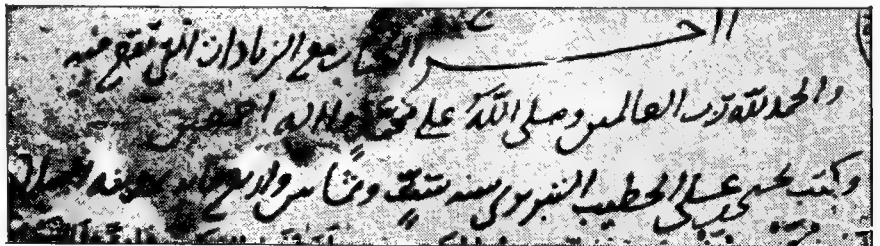 اخر الكتاب مع الزيادات التي تقع فيه
والحمد لله رب العالمين وصلى الله على محمد واله اجمعين
وكتب يحيى بن علي الخطيب التبريزي سنه وثمانين واربع مائه